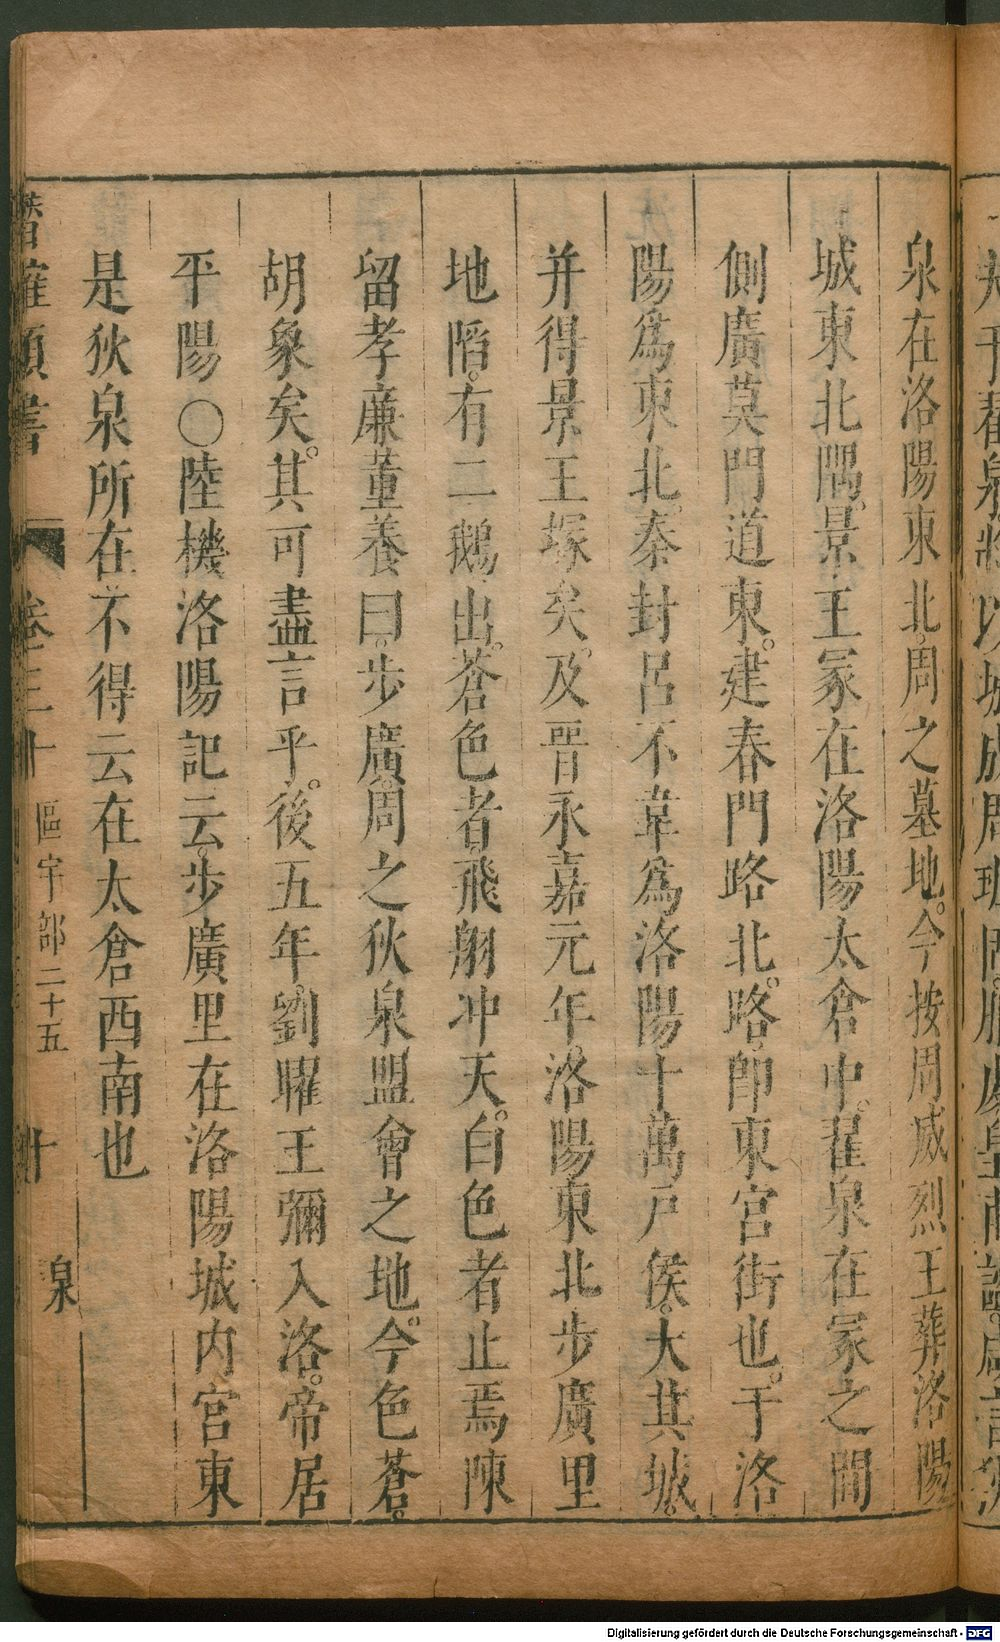 泉在洛陽東北。周之墓地。今按周威烈王葬洛陽
城東北隅。景王冢在洛陽太倉中。翟泉在冢之間
側廣莫門道東。建春門路北。路。卽東宮街也。于洛
陽爲東北。秦封呂不韋爲洛陽十萬戶侯。大其城。
并得景王塚矣。及晉永嘉元年。洛陽東北步廣里
地䧟。有二鵝出。蒼色者飛翔冲天。白色者止焉陳
留孝廉董養曰。步廣。周之狄泉盟會之地。今色蒼。
胡象矣。其可盡言乎。後五年。劉曜王彌入洛。帝居
平陽〇陸機洛陽記云。步廣里在洛陽城内宮東
是狄泉所在。不得云在太倉西南也
潛確類書 卷三十 區宇部二十五 十 泉
Digitalisierung gefördert durch die Deutsche Forschungsgemeinschaft - DFG